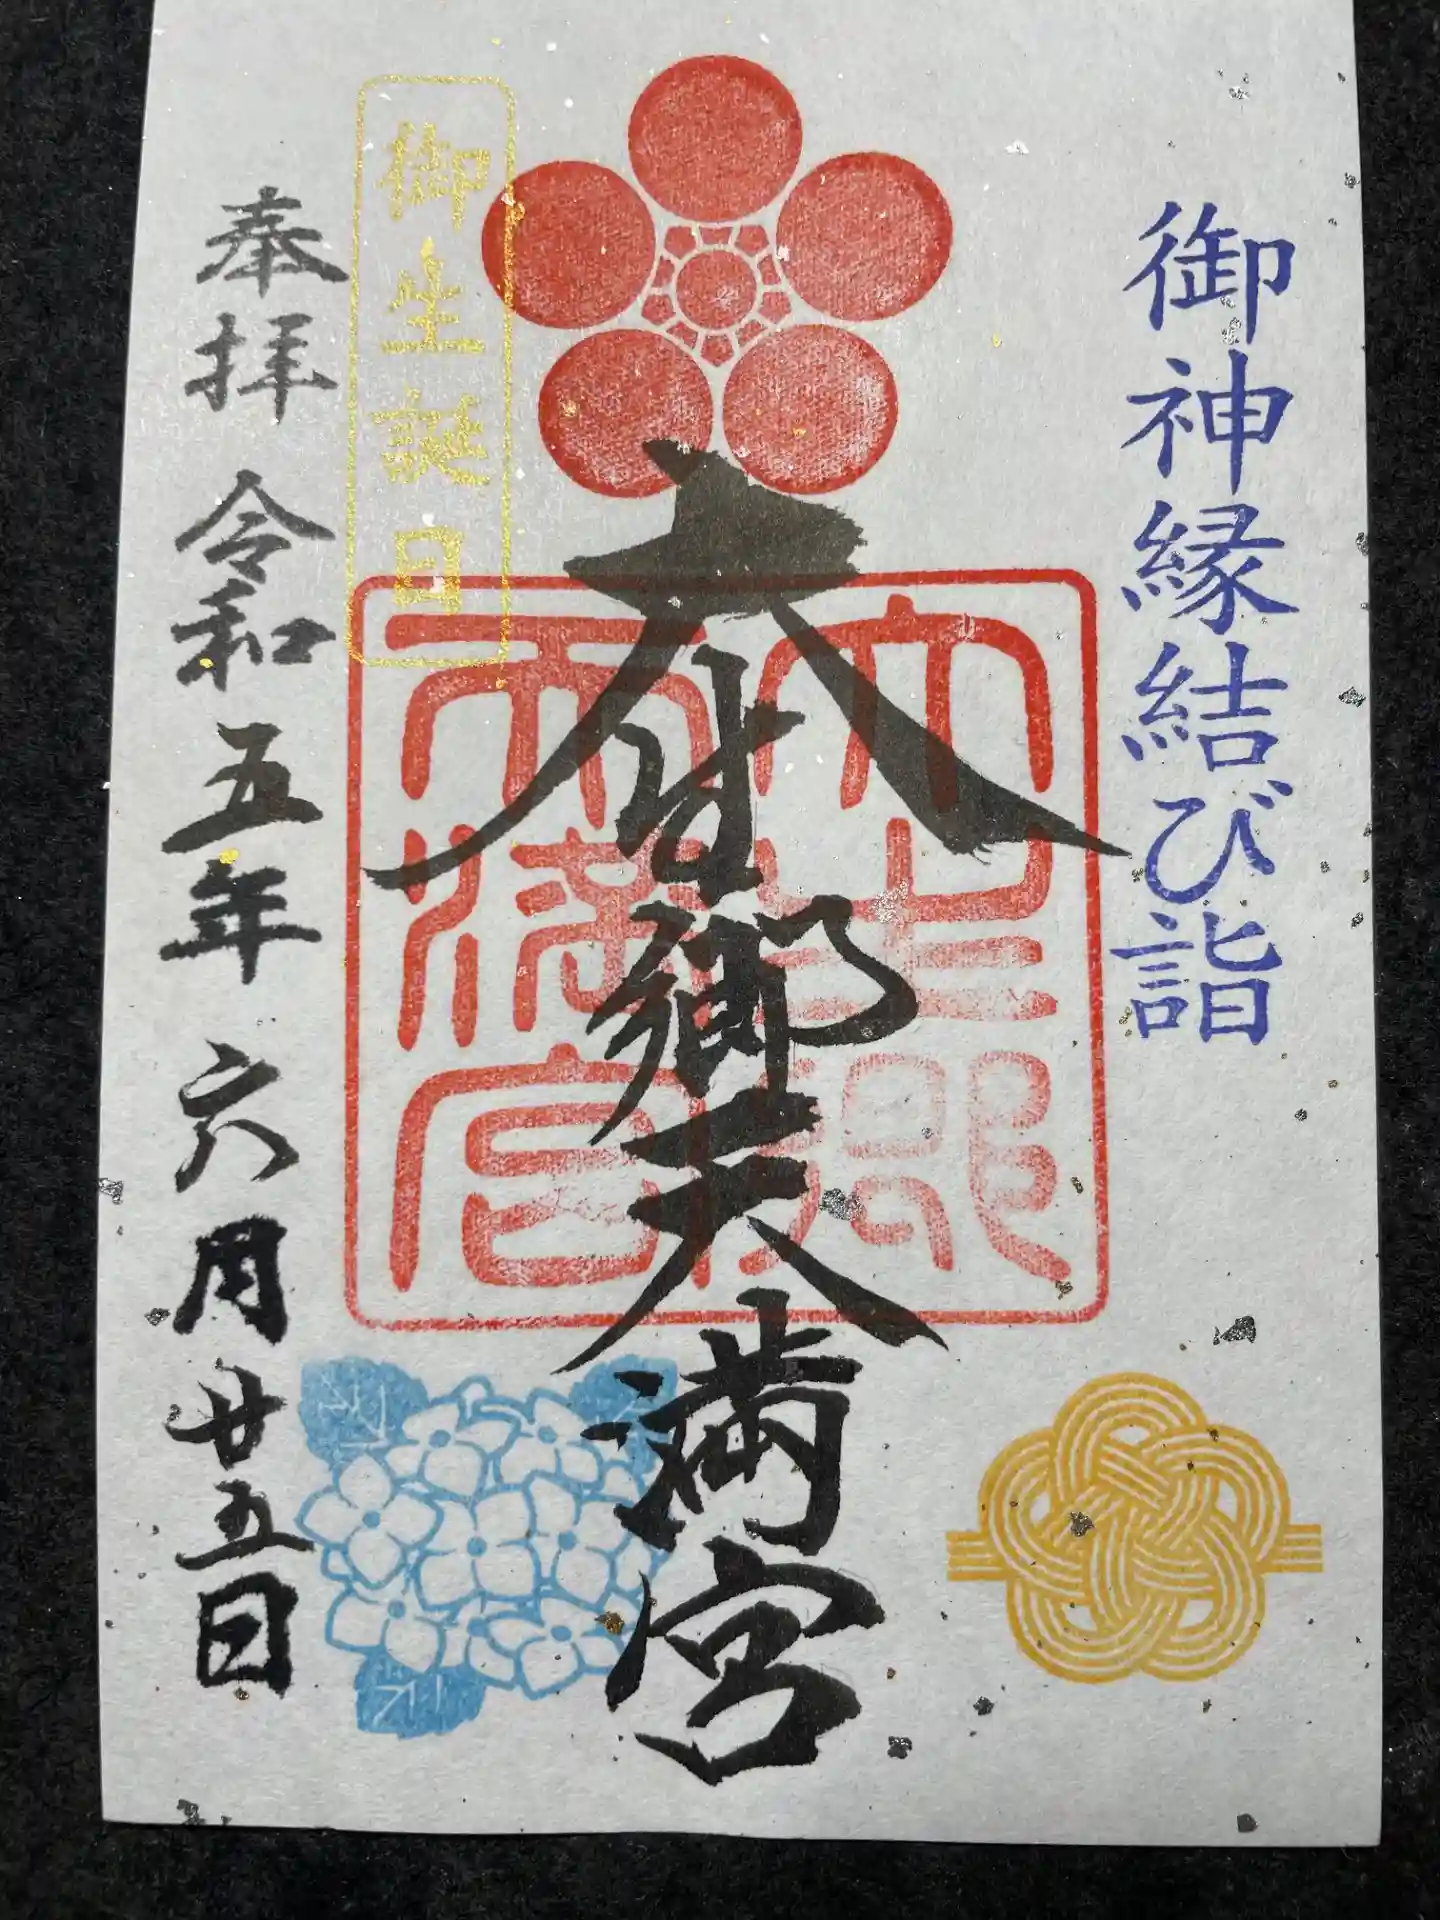 御神縁結び詣
大生郷天満宮
大生郷
天満宮
御生誕日
奉拝 令和五年六月廿五日